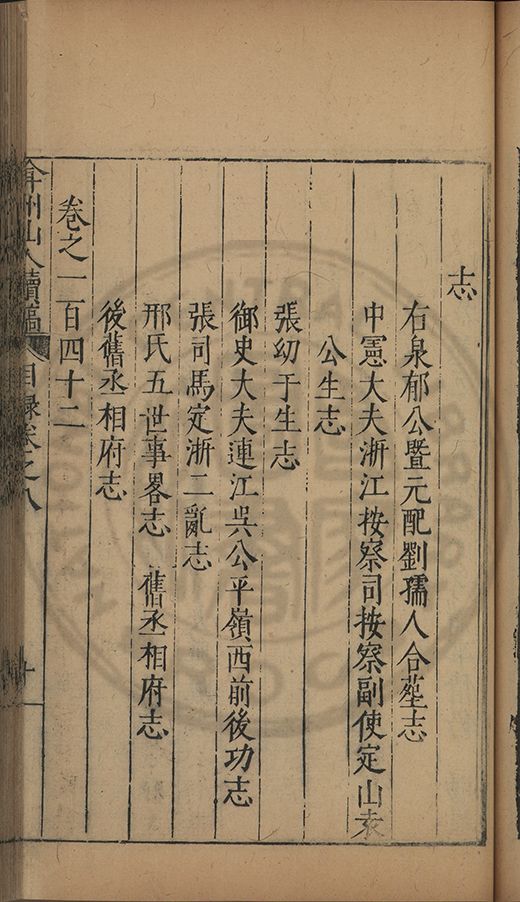 志
右泉郁公暨元配劉孺人合塟志
中憲大夫浙江按察司按察副使定山袁
公生志
張幼于生志
御史大夫連江吳公平嶺西前後功志
張司馬定浙二亂志
邢氏五世事畧志 舊丞相府志
後舊丞相府志
卷之一百四十二
弇州山人續稿 目錄卷之八